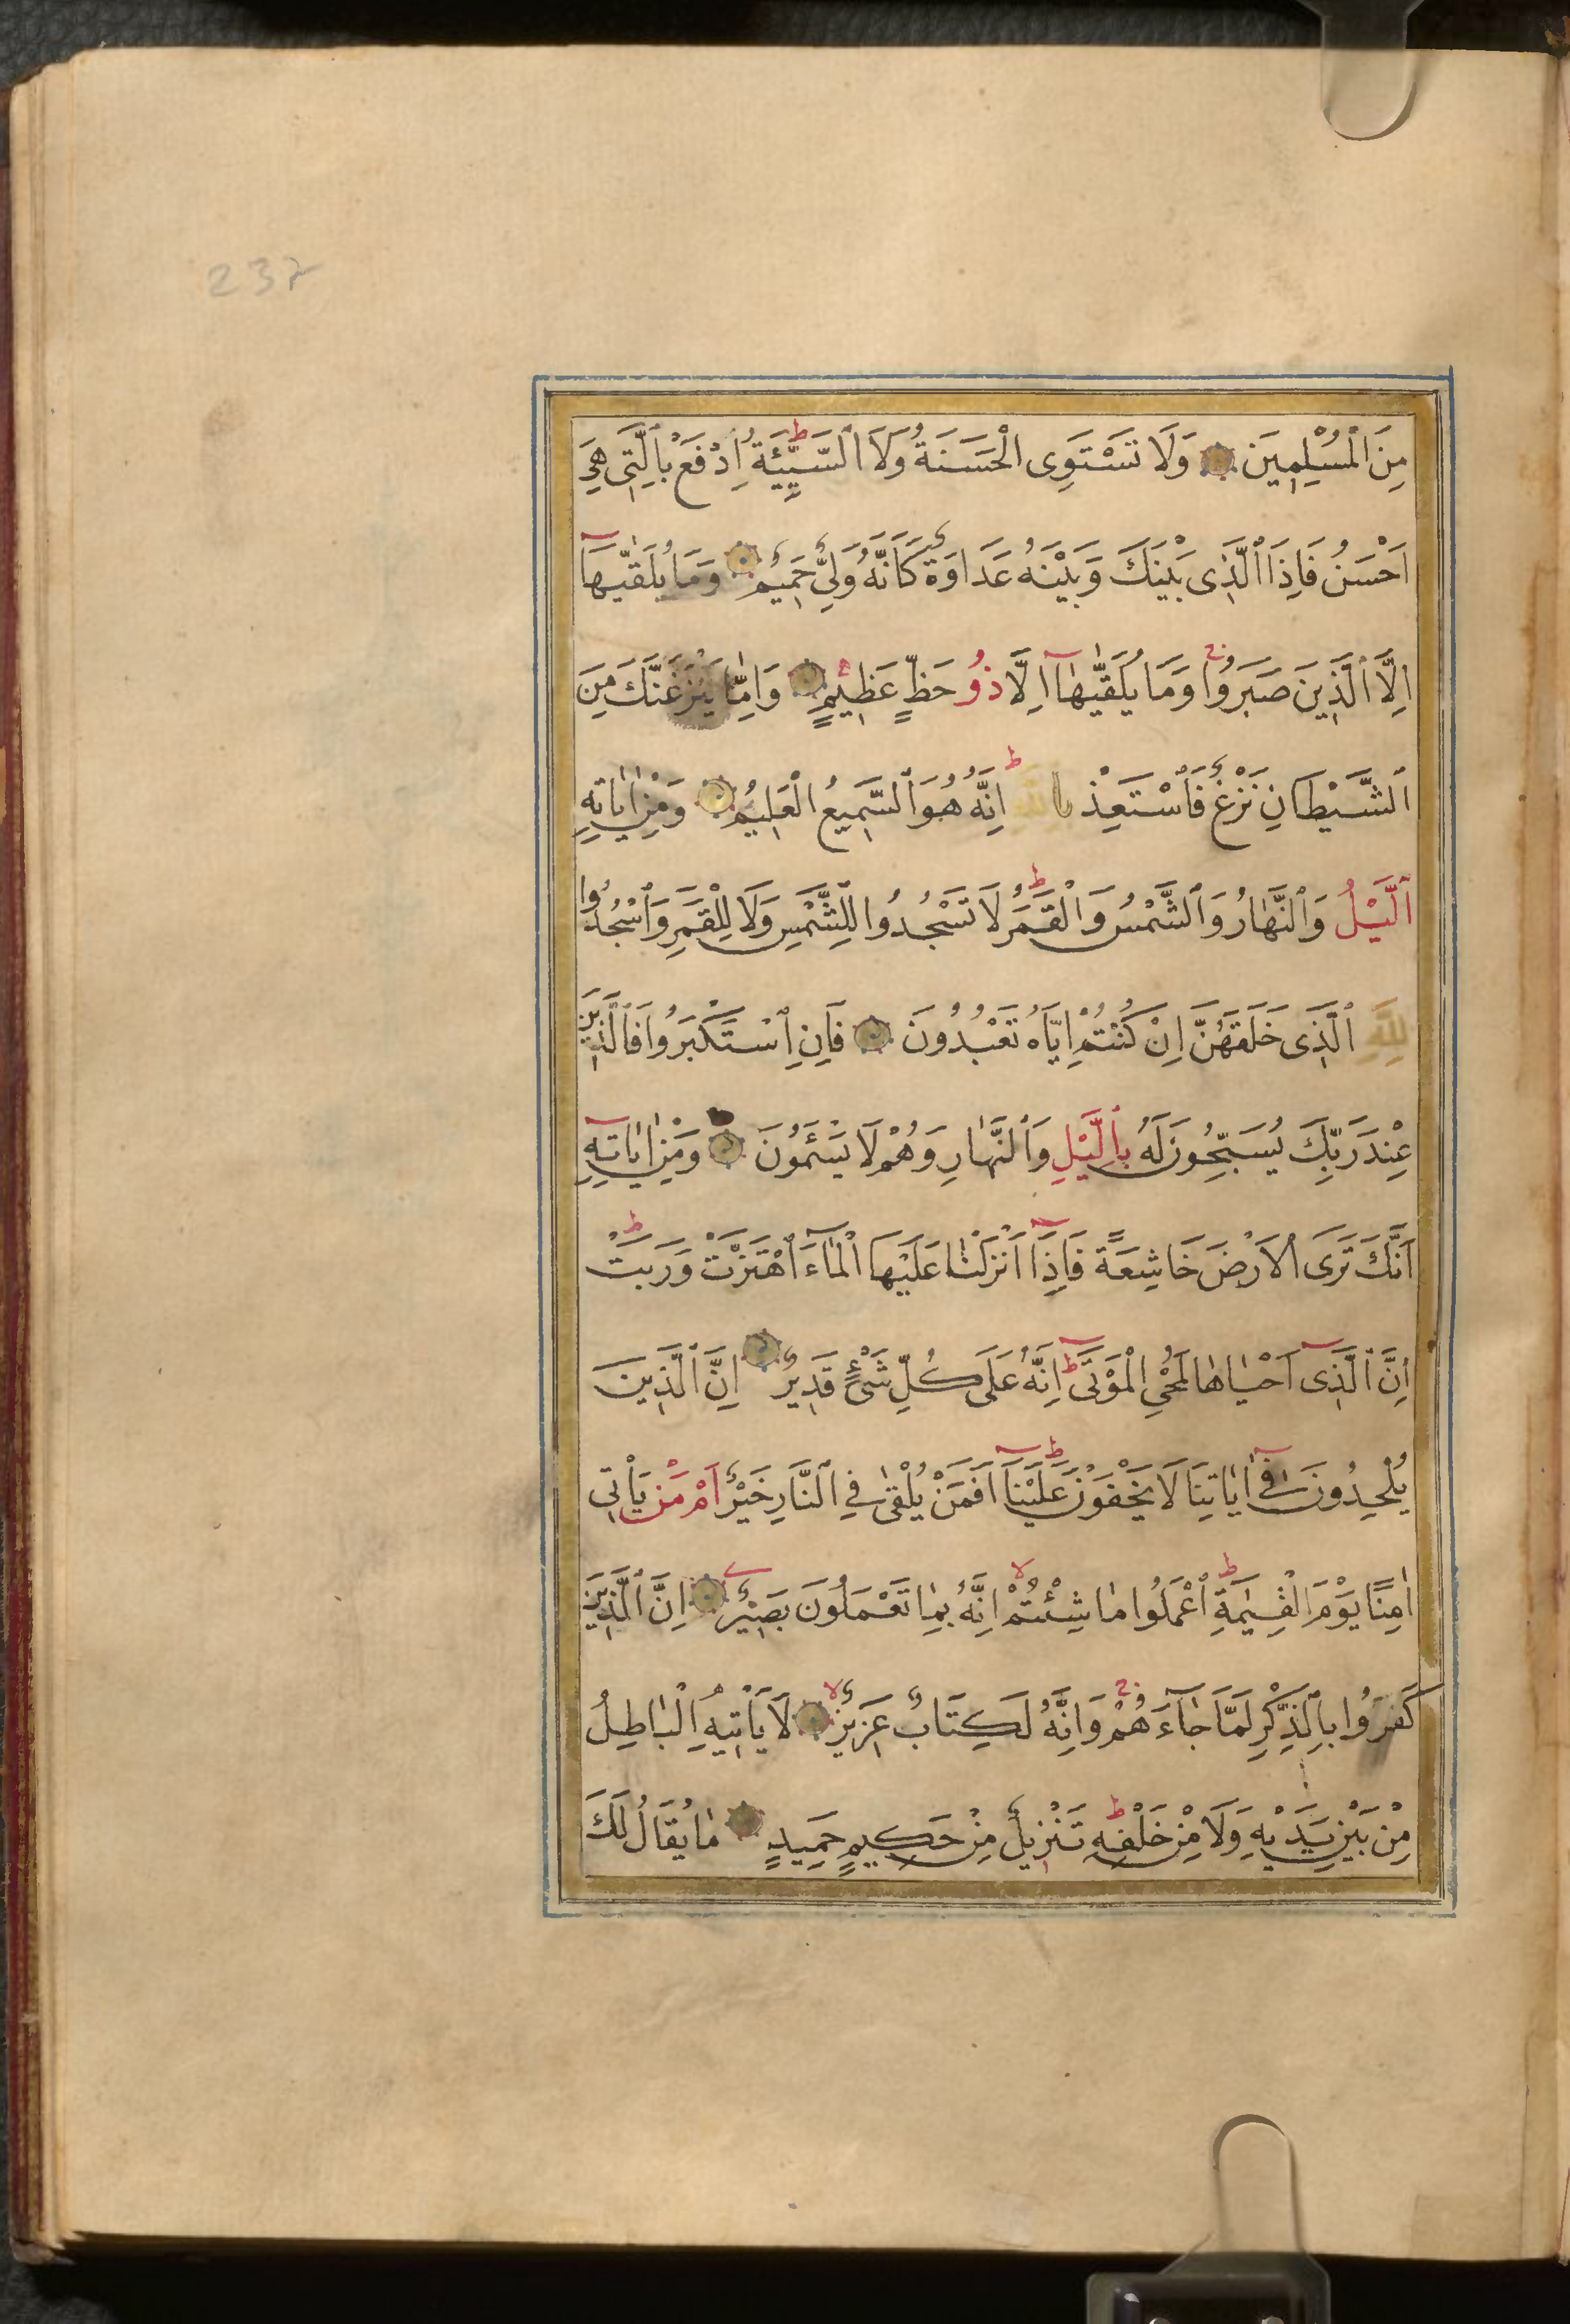 232
مِنَ ٱلْمُسْلِمِينَ وَلَا تَسْتَوِى الْحَسَنَةُ وَلَا ٱلسَّيِّئَةُ ط اِدْفَعْ بِٱلَّتِى هِىَ
اَحْسَنُ فَاِذَا ٱلَّذِى بَيْنَكَ وَبَيْنَهُ عَدَاوَةٌ كَاَنَّهُ وَلِىٌّ حَمِيمٌ وَمَا يُلَقّٰيهَآ
اِلَّا ٱلَّذِينَ صَبَرُوا ج وَمَا يُلَقّٰيهٰآ اِلَّا ذُو حَظٍّ عَظِيمٍ وَاِمّٰا يَنْزَغَنَّكَ مِنَ
ٱلشَّيْطَانِ نَزْغٌ فَٱسْتَعِذْ بِاللّٰهِ ط اِنَّهُ هُوَ ٱلسَّمِيعُ الْعَلِيمُ وَمِنْ اٰيَاتِهِ
ٱلَّيْلُ وَٱلنَّهٰارُ وَٱلشَّمْسُ وَالْقَمَرُ ط لَا تَسْجُدُوا لِلشَّمْسِ وَلَا لِلْقَمَرِ وَٱسْجُدُوا
لِلّٰهِ ٱلَّذِى خَلَقَهُنَّ اِنْ كُنْتُمْ اِيَّاهُ تَعْبُدُونَ فَاِنِ ٱسْتَكْبَرُوا فَالَّذِينَ
عِنْدَ رَبِّكَ يُسَبِّحُونَ لَهُ بِٱلَّيْلِ وَٱلنَّهٰارِ وَهُمْ لَا يَسْئَمُونَ وَمِنْ اٰيَاتِهِ
اَنَّكَ تَرَى الْاَرْضَ خَاشِعَةً فَاِذَآ اَنْزَلْنٰا عَلَيْهَا الْمٰآءَ ٱهْتَزَّتْ وَرَبَتْ ط
اِنَّ ٱلَّذِىٓ اَحْيٰاهٰا لَمُحْىِ الْمَوْتٰى ط اِنَّهُ عَلَى كُلِّ شَىْءٍ قَدِيرٌ اِنَّ ٱلَّذِينَ
يُلْحِدُونَ فِىٓ اٰيَاتِنَا لَا يَخْفَوْنَ عَلَيْنَآ ط اَفَمَنْ يُلْقٰى فِى ٱلنَّارِ خَيْرٌ اَمْ مَنْ يَأْتِى
اٰمِنًا يَوْمَ الْقِيٰمَةِ ط ٱعْمَلُوا مٰا شِئْتُمْ لا اِنَّهُ بِمٰا تَعْمَلُونَ بَصِيرٌ اِنَّ ٱلَّذِينَ
كَفَرُوا بِٱلذِّكْرِ لَمَّا جٰآءَهُمْ ج وَاِنَّهُ لَكِتَابٌ عَزِيزٌ لا لَا يَأْتِيهِ الْبٰاطِلُ
مِنْ بَيْنِ يَدَيْهِ وَلَا مِنْ خَلْفِهِ ط تَنْزِيلٌ مِنْ حَكِيمٍ حَمِيدٍ مٰا يُقَالُ لَكَ